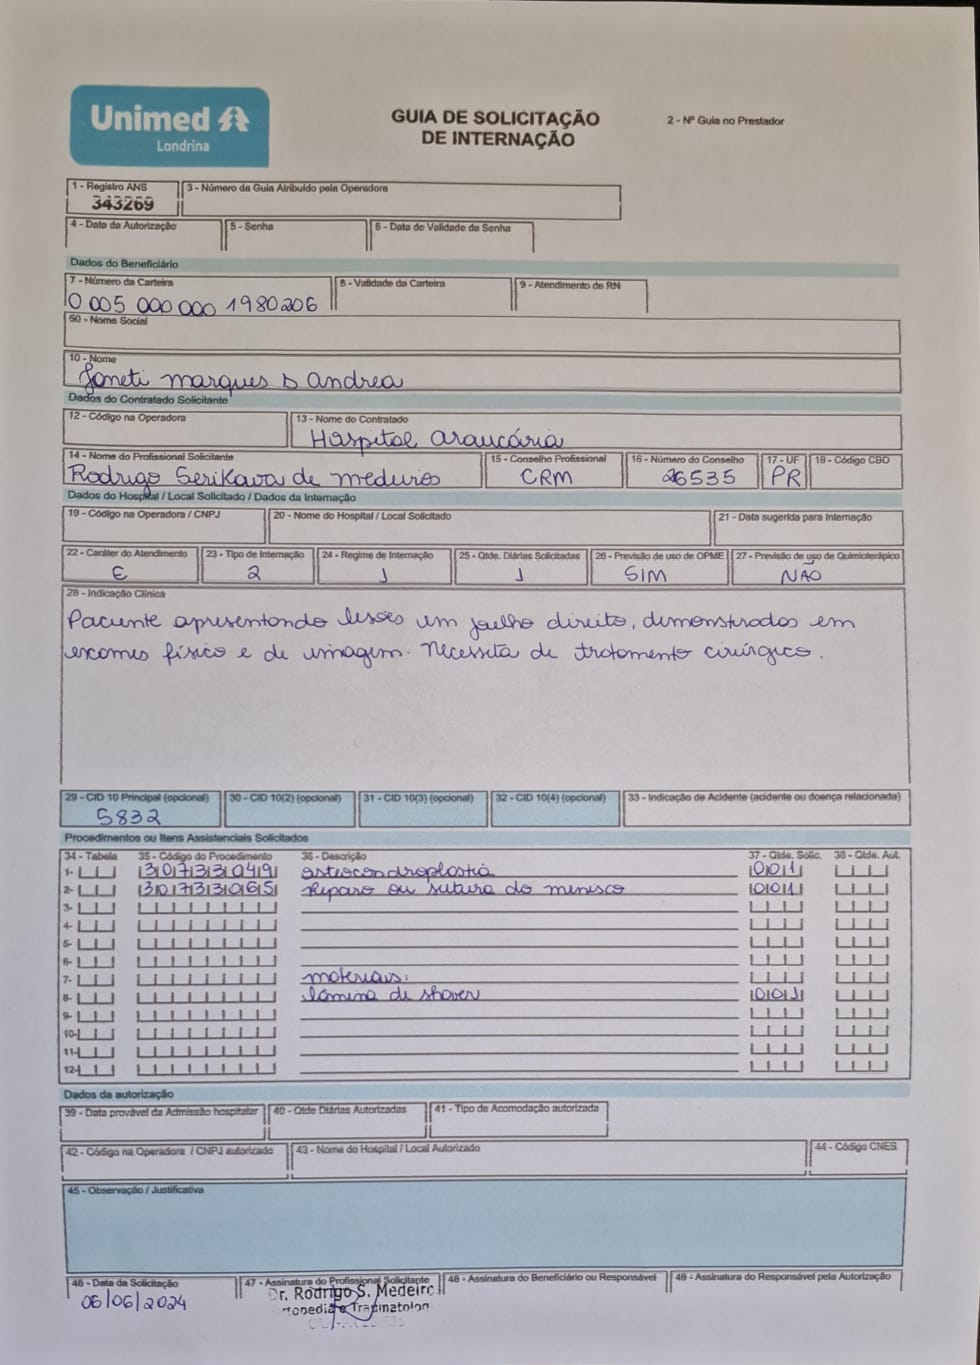 Unimed
Londrina
GUIA DE SOLICITAÇÃO
DE INTERNAÇÃO
2 - Nº Guia no Prestador
1 - Registro ANS
343269
3 - Número da Guia Atribuído pela Operadora
4 - Data da Autorização
5 - Senha
6 - Data de Validade da Senha
Dados do Beneficiário
7 - Número da Carteira
0 005 000 000 1980206
8 - Validade da Carteira
9 - Atendimento de RN
50 - Nome Social
10 - Nome
Joneti marques D andrea
Dados do Contratado Solicitante
12 - Código na Operadora
13 - Nome do Contratado
Hospital araucária
14 - Nome do Profissional Solicitante
Rodrigo Serikava de medeiros
15 - Conselho Profissional
CRM
16 - Número do Conselho
26535
17 - UF
PR
18 - Código CBO
Dados do Hospital / Local Solicitado / Dados da Internação
19 - Código na Operadora / CNPJ
20 - Nome do Hospital / Local Solicitado
21 - Data sugerida para Internação
22 - Caráter do Atendimento
E
23 - Tipo de Internação
2
24 - Regime de Internação
1
25 - Qtde. Diárias Solicitadas
1
26 - Previsão de uso de OPME
SIM
27 - Previsão de uso de Quimioterápico
NÃO
28 - Indicação Clínica
Paciente apresentando lesões em joelho direito, demonstrados em
exames físico e de imagem. Necessita de tratamento cirúrgico.
29 - CID 10 Principal (opcional)
S832
30 - CID 10(2) (opcional)
31 - CID 10(3) (opcional)
32 - CID 10(4) (opcional)
33 - Indicação de Acidente (acidente ou doença relacionada)
Procedimentos ou Itens Assistenciais Solicitados
34 - Tabela 35 - Código do Procedimento 36 - Descrição 37 - Qtde. Solic. 38 - Qtde. Aut.
1- 30733049 osteocondroplastia 001
2- 30733065 Reparo ou sutura do menisco 001
3-
4-
5-
6-
7- materiais:
8- lâmina de shaver 001
9-
10-
11-
12-
Dados da autorização
39 - Data provável da Admissão hospitalar
40 - Qtde Diárias Autorizadas
41 - Tipo de Acomodação autorizada
42 - Código na Operadora / CNPJ autorizado
43 - Nome do Hospital / Local Autorizado
44 - Código CNES
45 - Observação / Justificativa
46 - Data da Solicitação
06/06/2024
47 - Assinatura do Profissional Solicitante
Dr. Rodrigo S. Medeiro
48 - Assinatura do Beneficiário ou Responsável
49 - Assinatura do Responsável pela Autorização